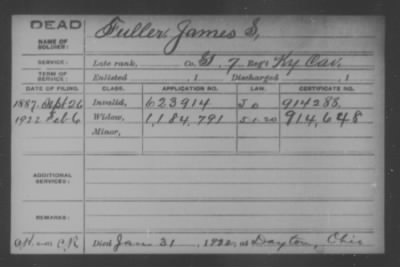 DEAD
NAME OF SOLDIER: Fuller, James S,
SERVICE: Late rank, Co. G, 7 Reg't Ky Cav.
TERM OF SERVICE: Enlisted , 1 Discharged , 1
DATE OF FILING. CLASS. APPLICATION NO. LAW. CERTIFICATE NO.
1887. Sept 26 Invalid, 623914 914288.
1922 Feb 6 Widow, 1,184,791 5-1-20 914,648
Minor,
ADDITIONAL SERVICES:
REMARKS:
Died Jan 31, 1922, at Dayton, Ohio